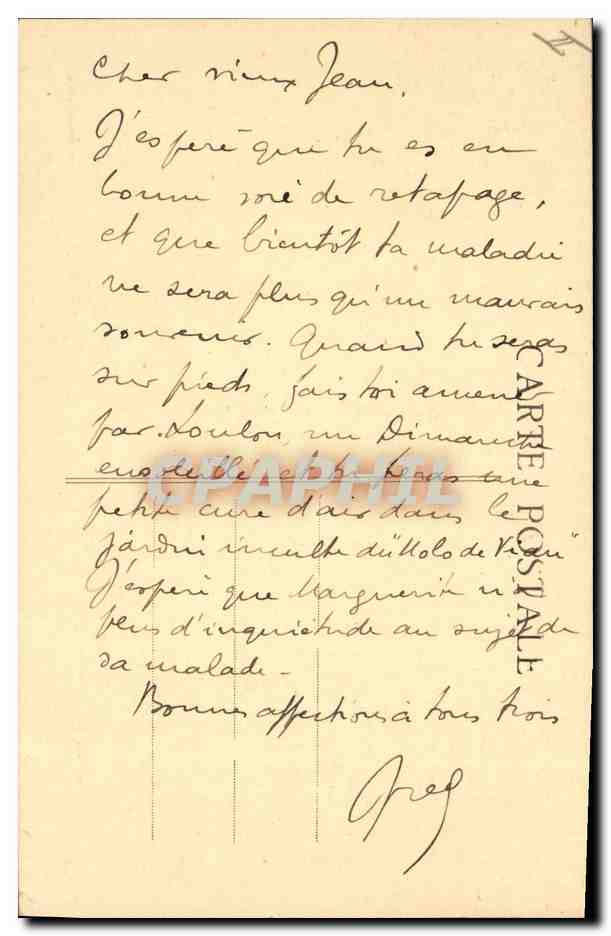 Cher vieux Jean,
J'espère que tu es en
bonne voie de retapage,
et que bientôt ta maladie
ne sera plus qu'un mauvais
souvenir. Quand tu seras
sur pieds, fais toi amener
par Loulou, un Dimanche
ensoleillé et tu feras une
petite cure d'air dans le
jardin inculte du "Molo de Viau"
J'espère que Marguerite n'a
plus d'inquiétude au sujet de
sa malade -
Bonnes affections à tous trois
CARTE POSTALE
CPAPHIL